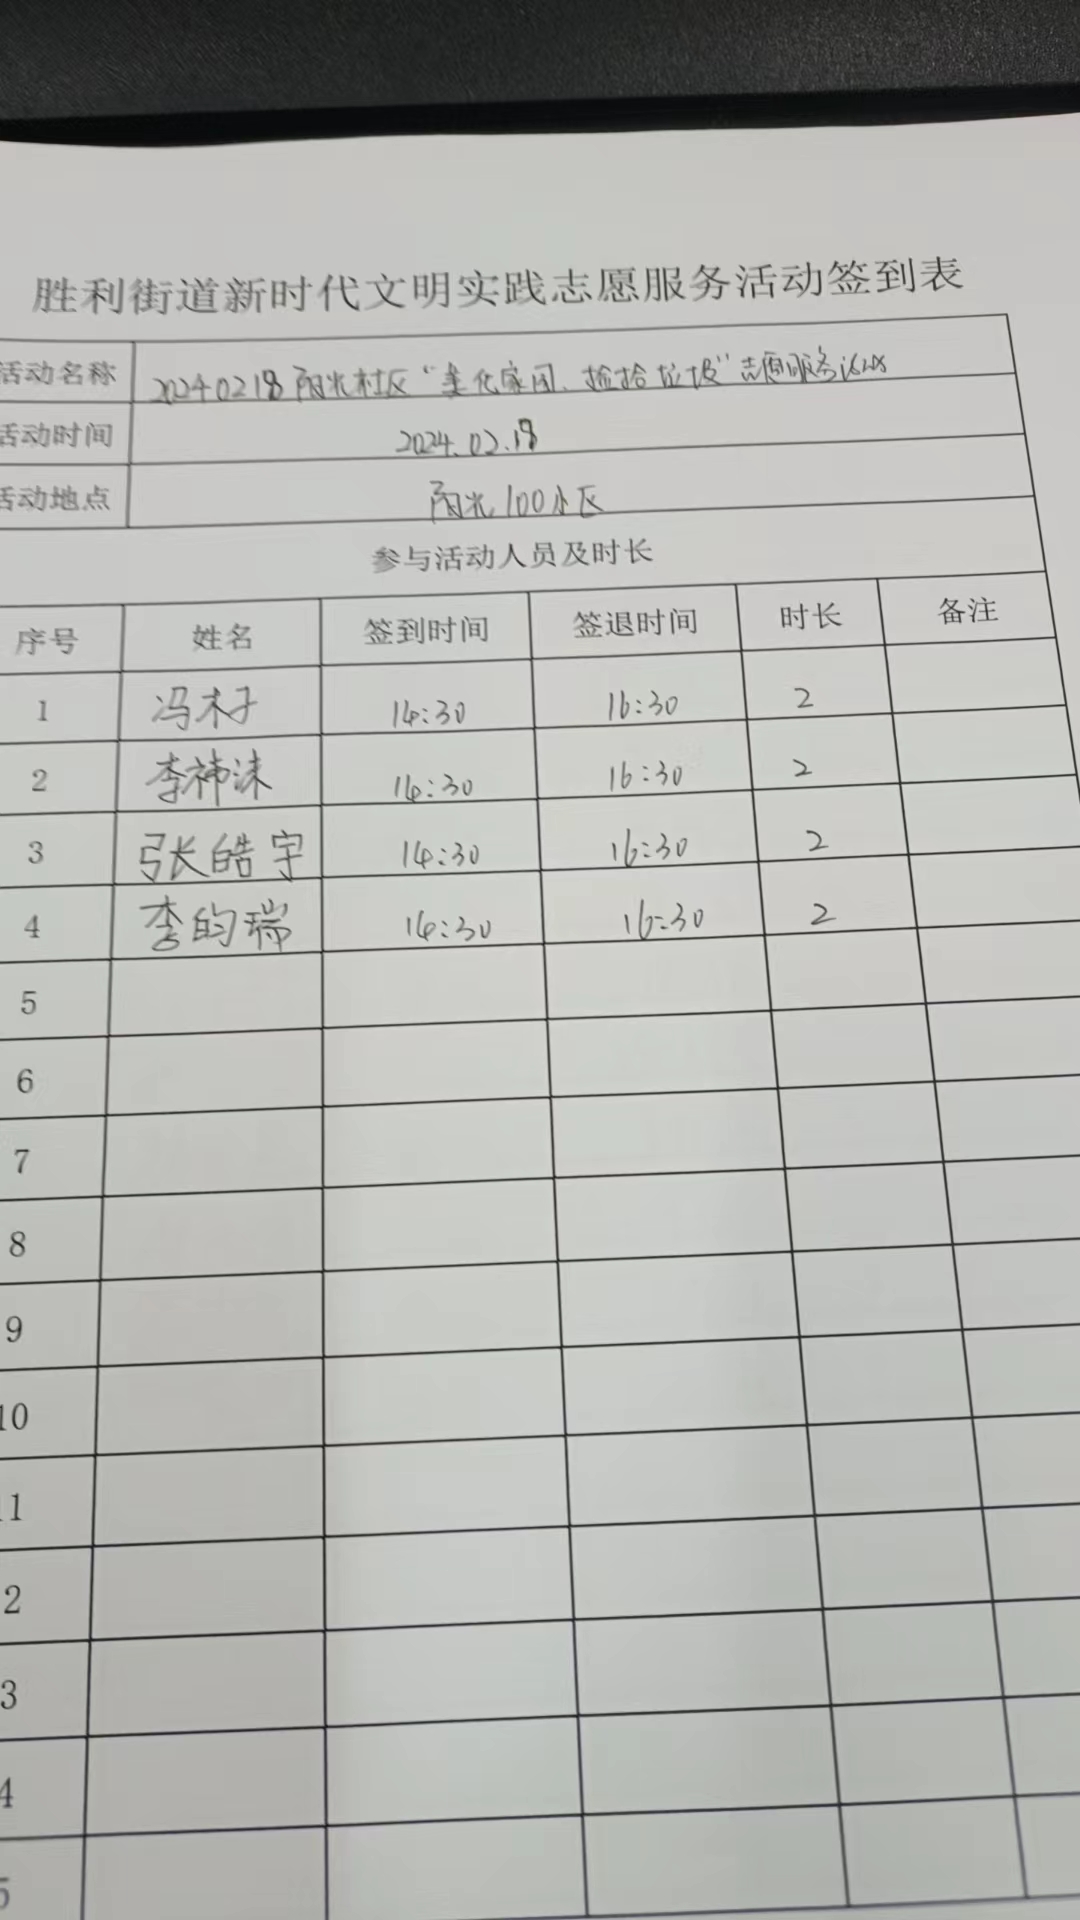 胜利街道新时代文明实践志愿服务活动签到表
活动名称 20240218阳光社区“美化家园、捡拾垃圾”志愿服务活动
活动时间 2024.02.18
活动地点 阳光100小区
参与活动人员及时长
序号 姓名 签到时间 签退时间 时长 备注
1 冯木子 14:30 16:30 2
2 李祎沫 14:30 16:30 2
3 张皓宇 14:30 16:30 2
4 李昀瑞 14:30 16:30 2
5
6
7
8
9
10
11
2
3
4
5